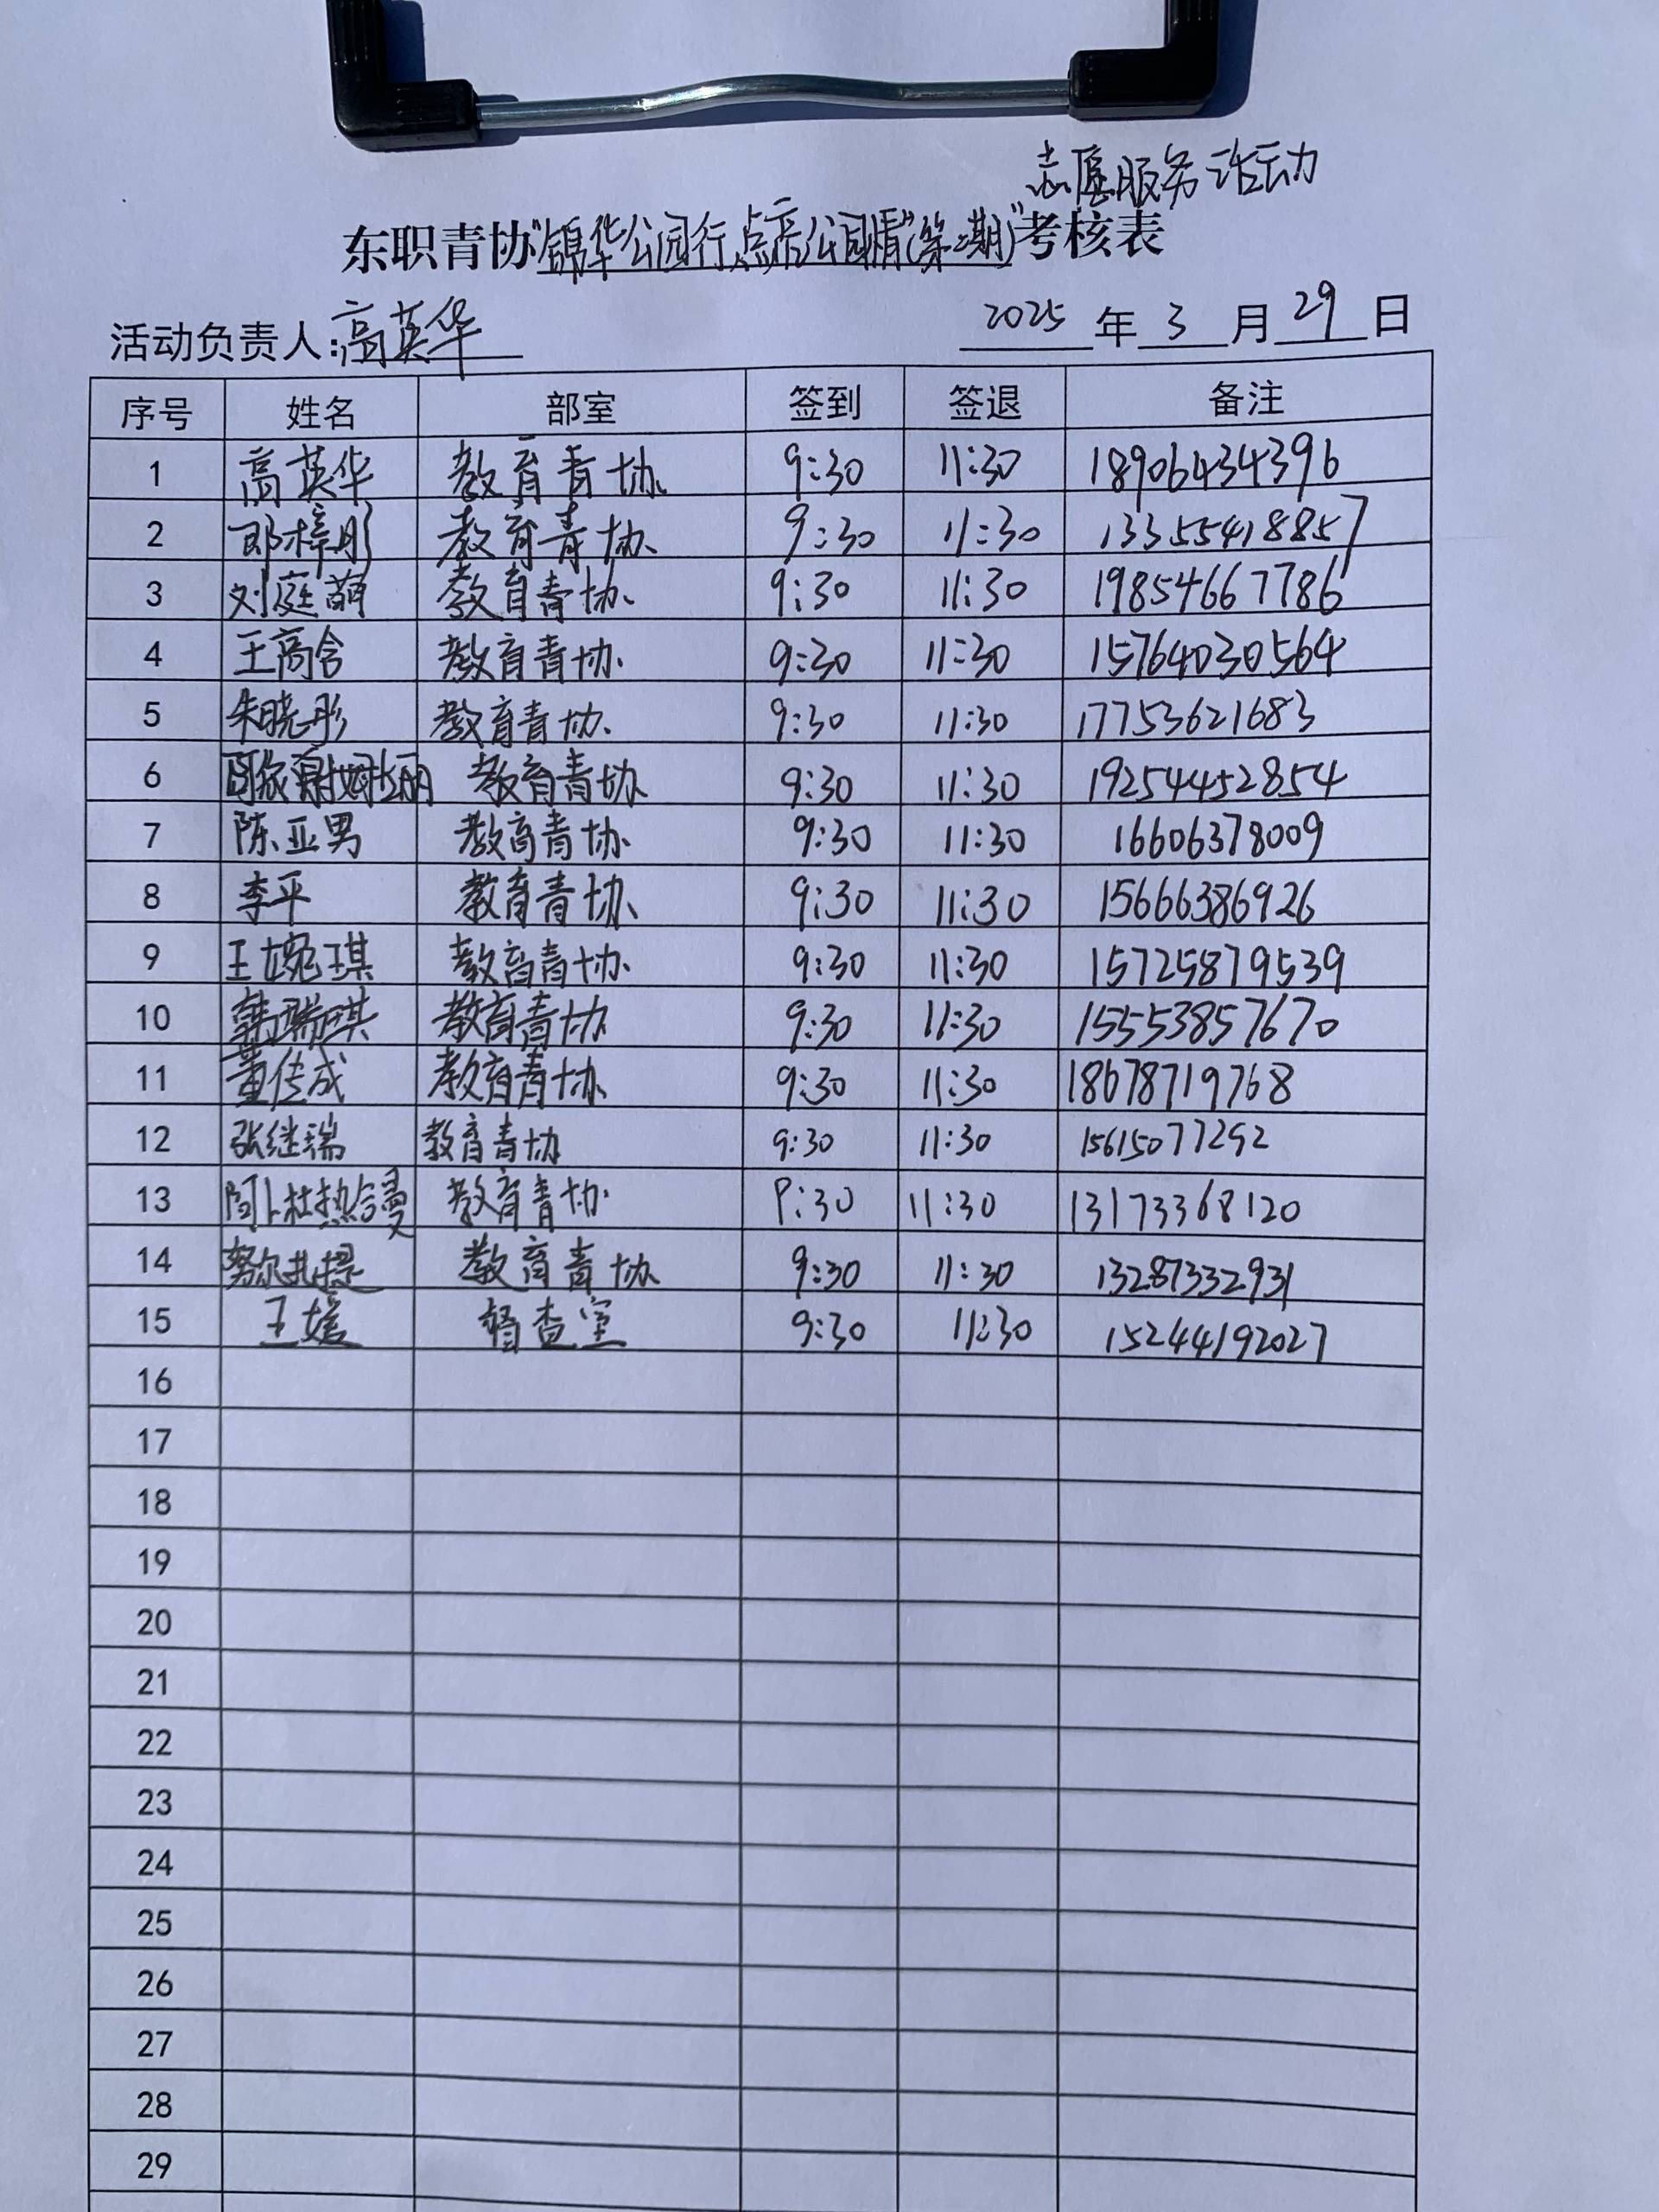 志愿服务活动
东职青协"锦华公园行,点亮公园情"(第二期)"考核表
活动负责人:高英华 2025年3月29日
序号 姓名 部室 签到 签退 备注
1 高英华 教育青协 9:30 11:30 18906434396
2 邵梓彤 教育青协 9:30 11:30 13355418857
3 刘庭萌 教育青协 9:30 11:30 19854667786
4 王高含 教育青协 9:30 11:30 15764030564
5 朱晓彤 教育青协 9:30 11:30 17753621683
6 教育青协 9:30 11:30 19254452854
7 陈亚男 教育青协 9:30 11:30 16606378009
8 李平 教育青协 9:30 11:30 15666386926
9 王婉琪 教育青协 9:30 11:30 15725879539
10 韩瑞琪 教育青协 9:30 11:30 15553857670
11 董传成 教育青协 9:30 11:30 18678719768
12 张继瑞 教育青协 9:30 11:30 15615077292
13 阿卜杜热合曼 教育青协 9:30 11:30 13173368120
14 努尔扎提 教育青协 9:30 11:30 13287332931
15 王媛 督查室 9:30 11:30 15244192027
16
17
18
19
20
21
22
23
24
25
26
27
28
29